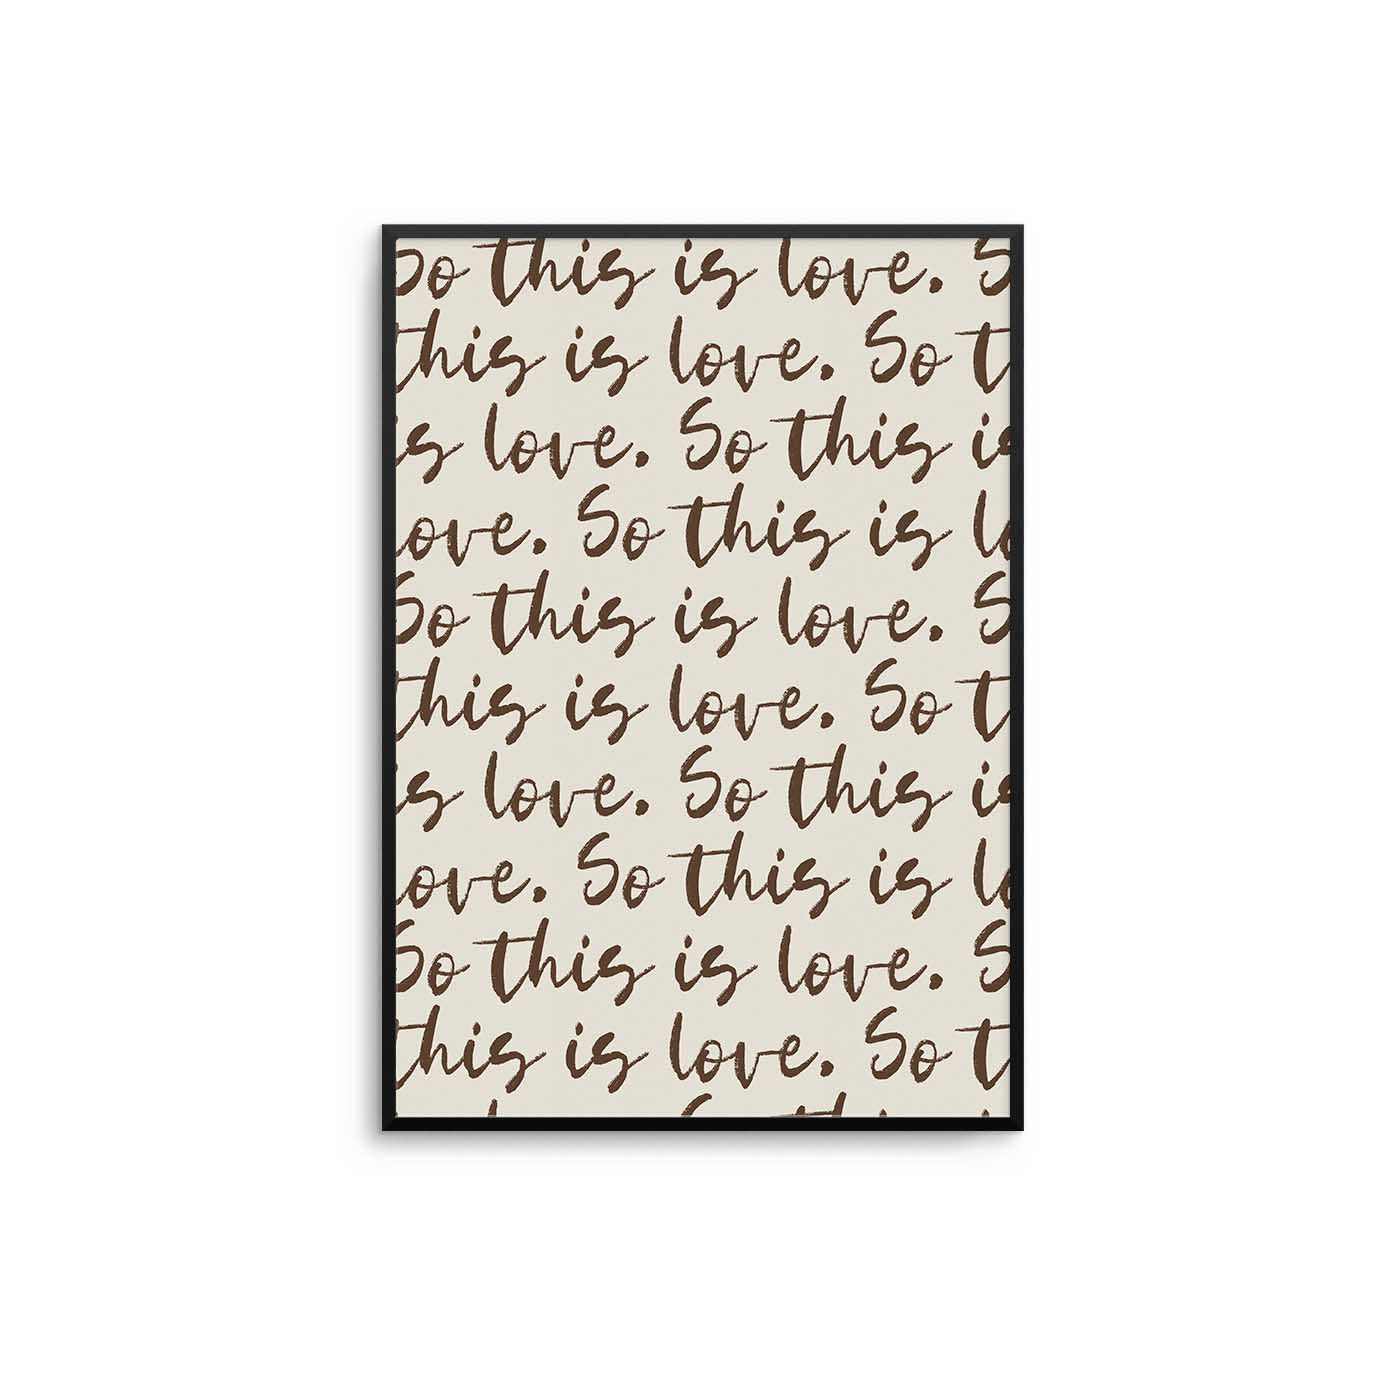 So this is love. S
this is love. So t
is love. So this is
ove. So this is lo
So this is love. S
this is love. So t
is love. So this is
ove. So this is lo
So this is love. S
this is love. So t